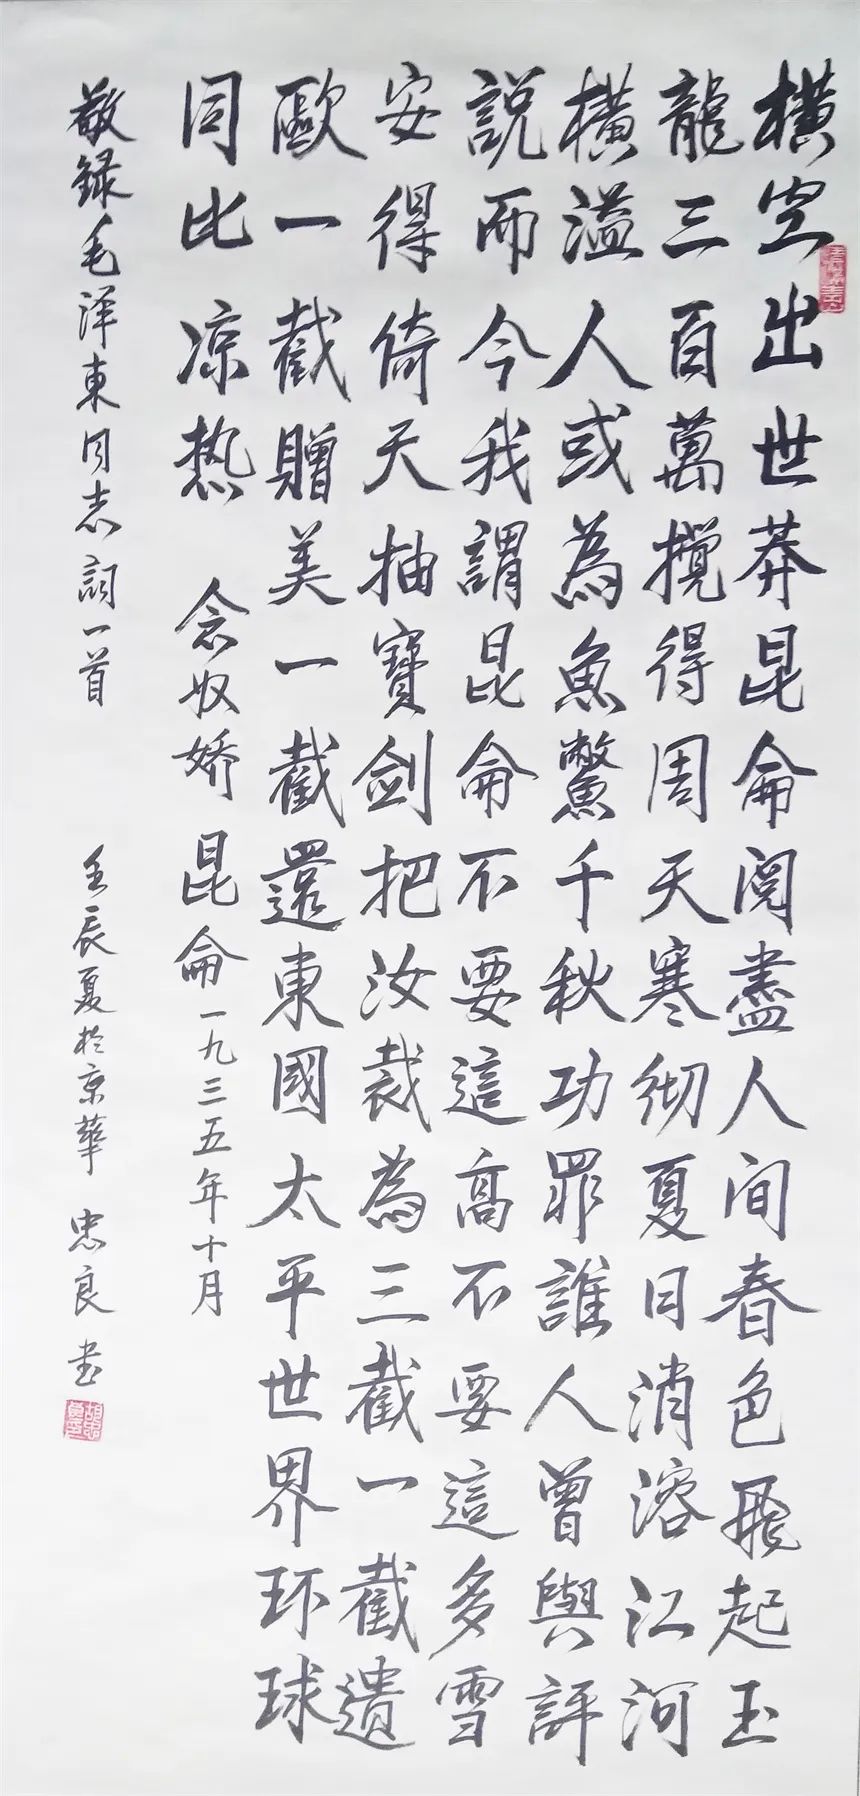 橫空出世莽昆侖閱盡人间春色飛起玉
龍三百萬攪得周天寒彻夏日消溶江河
橫溢人或為魚鱉千秋功罪誰人曾與評
説而今我謂昆侖不要這高不要這多雪
安得倚天抽寶劍把汝裁為三截一截遺
歐一截贈美一截還東國太平世界环球
同比凉热 念奴娇昆侖一九三五年十月
敬録毛泽東同志詞一首 壬辰夏於京華 忠良书